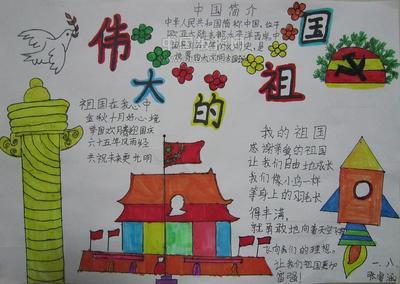 中国简介
中华人民共和国简称中国,位于
欧亚大陆东部太平洋西岸,中
伟大的祖国
祖国在我心中
金秋十月好心境
举国欢月喜迎国庆
六十五年风雨经
共祝未来更光明
我的祖国
感谢亲爱的祖国
让我们自由地成长
我们像小鸟一样
等身上的羽毛长
得丰满,
就勇敢地向着天空飞
飞向我们的理想。
让我们祖国更加
富强!
一、八